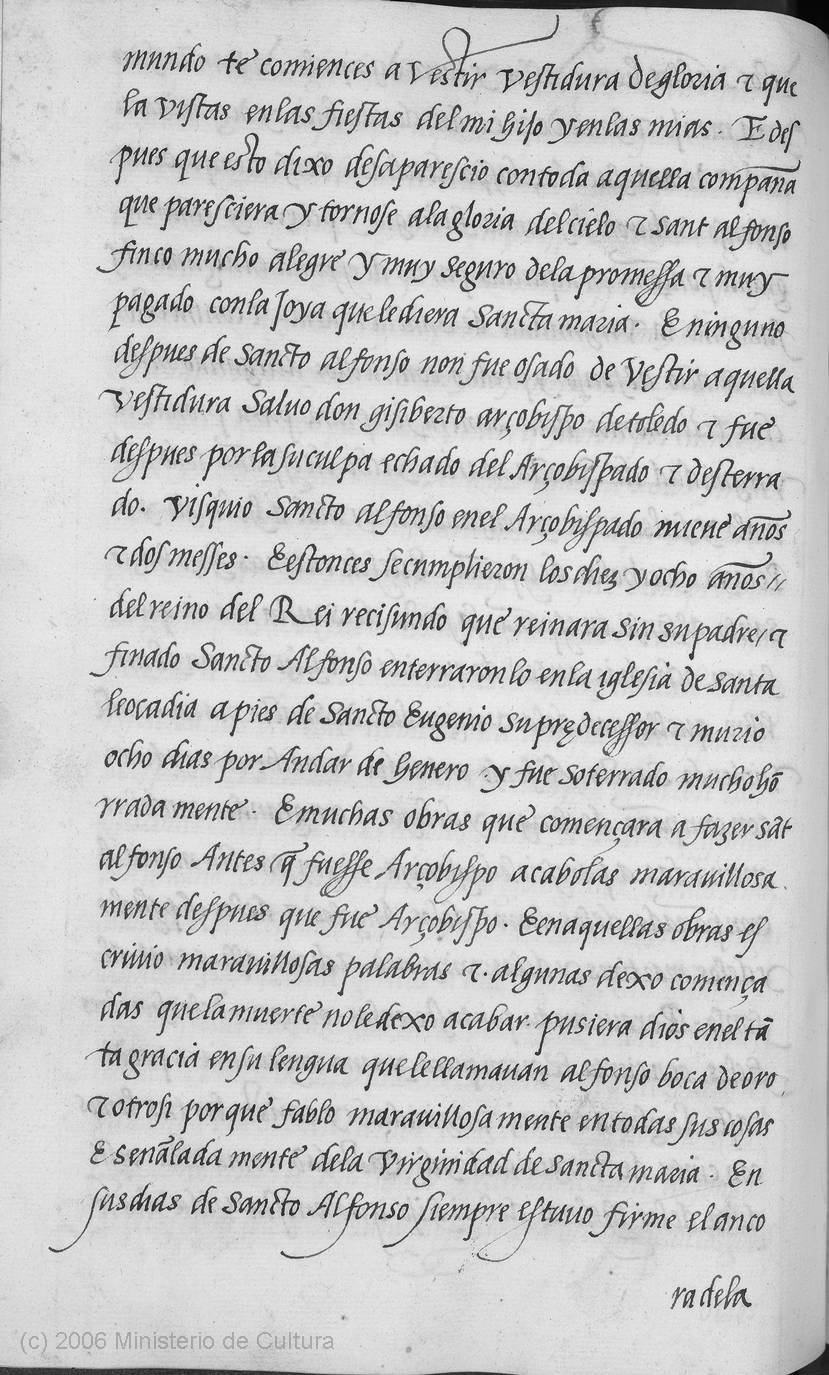 mundo te comiences a Vestir Vestidura de gloria τ que
la vistas en las fiestas del mi hijo y en las mias. E des
pues que esto dixo desaparescio con toda aquella compan̄a
que paresciera y tornose a la gloria del cielo τ sant alfonso
finco mucho alegre y muy seguro de la promessa τ muy
pagado con la Joya que le diera Sancta maria. E ninguno
despues de Sancto alfonso non fue osado de Vestir aquella
Vestidura Saluo don gisiberto arçobispo de toledo τ fue
despues por la su culpa echado del Arçobispado τ desterra
do. Visquio Sancto alfonso en el Arçobispado nueue an̄os
τ dos messes. E estonces se cumplieron los diez y ocho an̄os //
del reino del Rei recisundo que reinara sin su padre, τ
finado Sancto Alfonso enterraron lo en la iglesia de santa
leocadia a pies de Sancto Eugenio su prędecessor τ murio
ocho dias por Andar de henero y fue soterrado mucho hō
rrada mente. E muchas obras que començara a fazer sāt
alfonso Antes q̄ fuesse Arçobispo acabolas maravillosa
mente despues que fue Arçobispo. E en aquellas obras es
crivio maravillosas palabras τ. algunas dexo comença
das que la muerte no le dexo acabar. pusiera dios en el tā
ta gracia en su lengua que le llamauan alfonso boca de oro
τ otrosi porque fablo maravillosa mente en todas sus cosas
E sen̄alada mente de la Virginidad de sancta maria. En
sus dias de Sancto Alfonso siempre estuuo firme el anco
ra de la
(c) 2006 Ministerio de Cultura